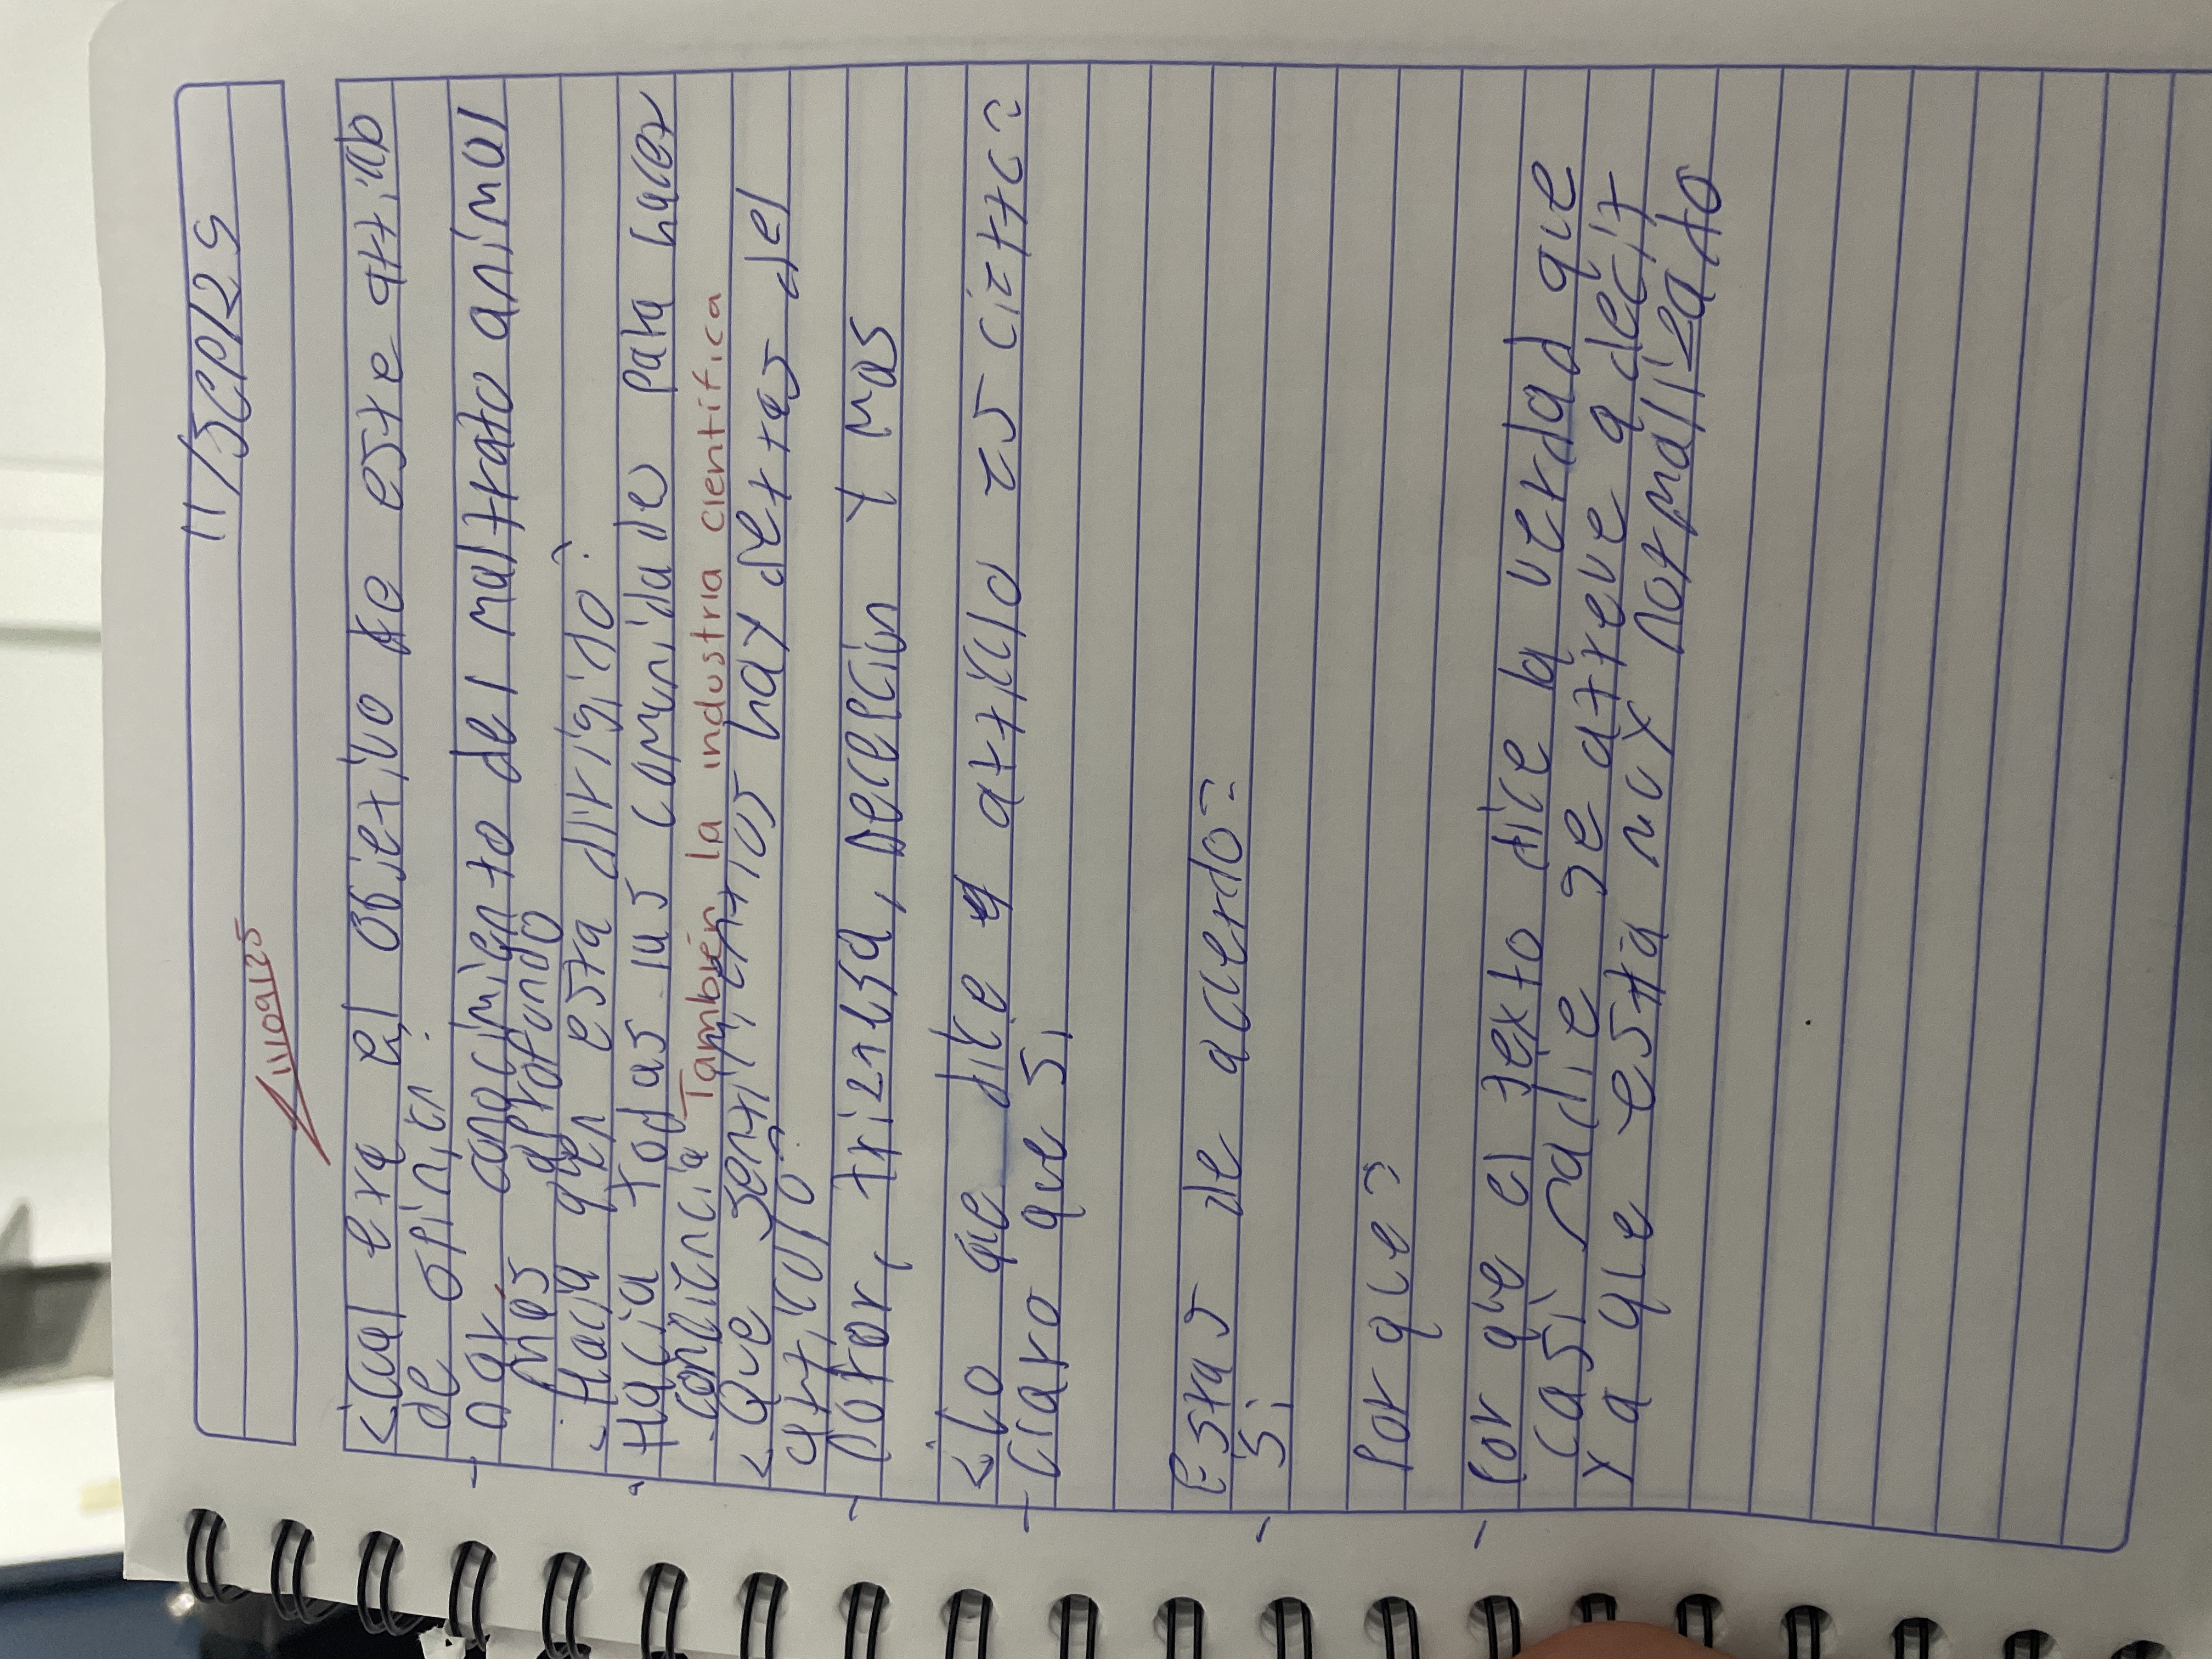 11/SEP/25
11/09/25
¿Cual era el objetivo de este articulo
de opinion?
Dar conocimiento del maltrato animal
mas aprofundo
¿Hacia quien esta dirigido?
Hacia todas las comunidades para hacer
conciencia También la industria científica
¿Que sentimientos hay detras del
articulo?
Dolor, tristesa, decepción y mas
¿Lo que dice el articulo es cierto?
Claro que si
Estas de acuerdo?
Si
Por que?
Por que el texto dice la verdad que
casi nadie se atreve a decir
ya que está muy normalizado